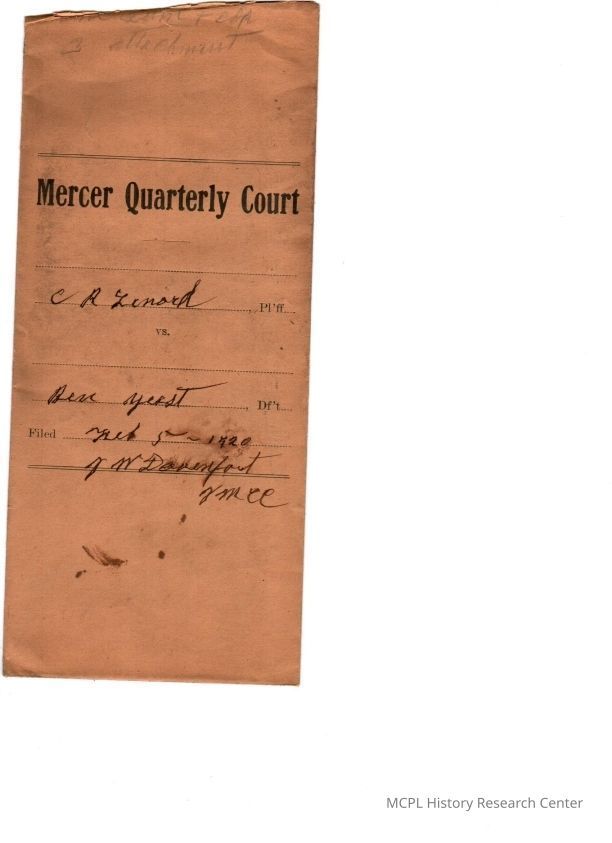 3 attachment
Mercer Quarterly Court
C R Lenord, Pl'ff.
vs.
Ben Yeast, Df't.
Filed Feb 5 - 1920
J W Davenport
J M C C
MCPL History Research Center